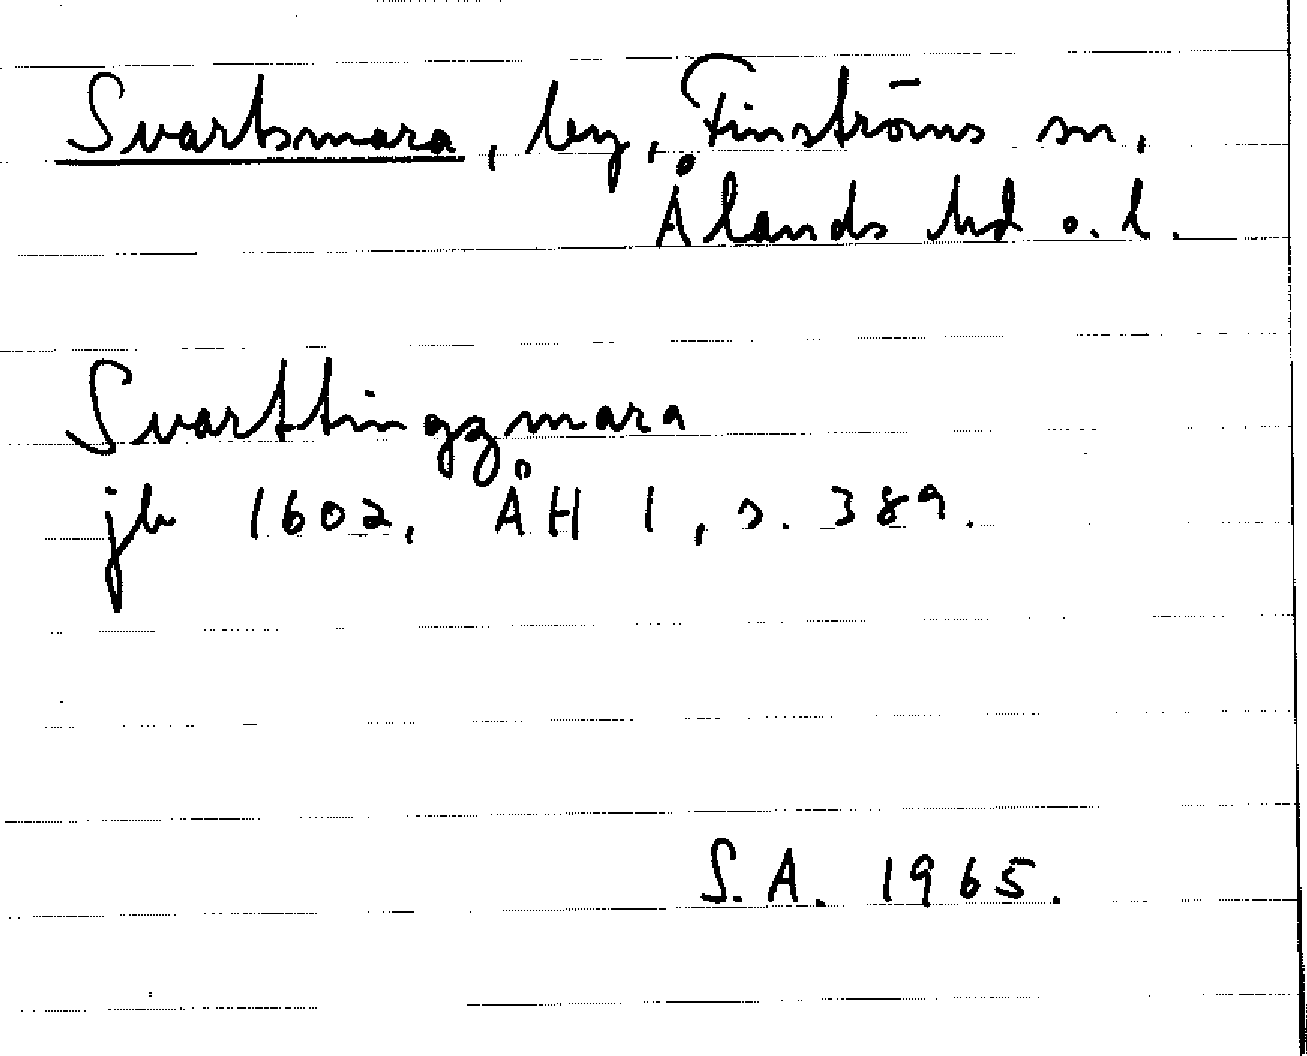 Svartsmara, by, Finströms sn,
Ålands hd o. l.
Svarttinggzmara
jb 1602, ÅH 1, s. 389.
S.A. 1965.